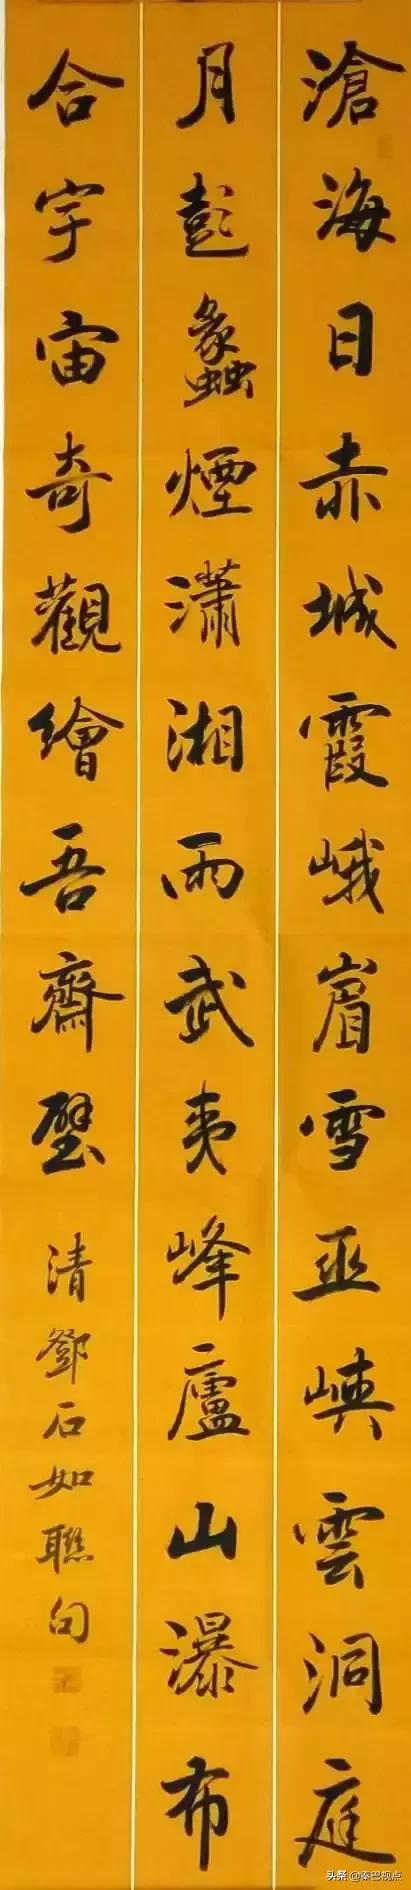 滄海日赤城霞峨嵋雪巫峽雲洞庭
月彭蠡煙瀟湘雨武夷峰廬山瀑布
合宇宙奇觀繪吾齋壁
清鄧石如聯句
头条@秦巴视点